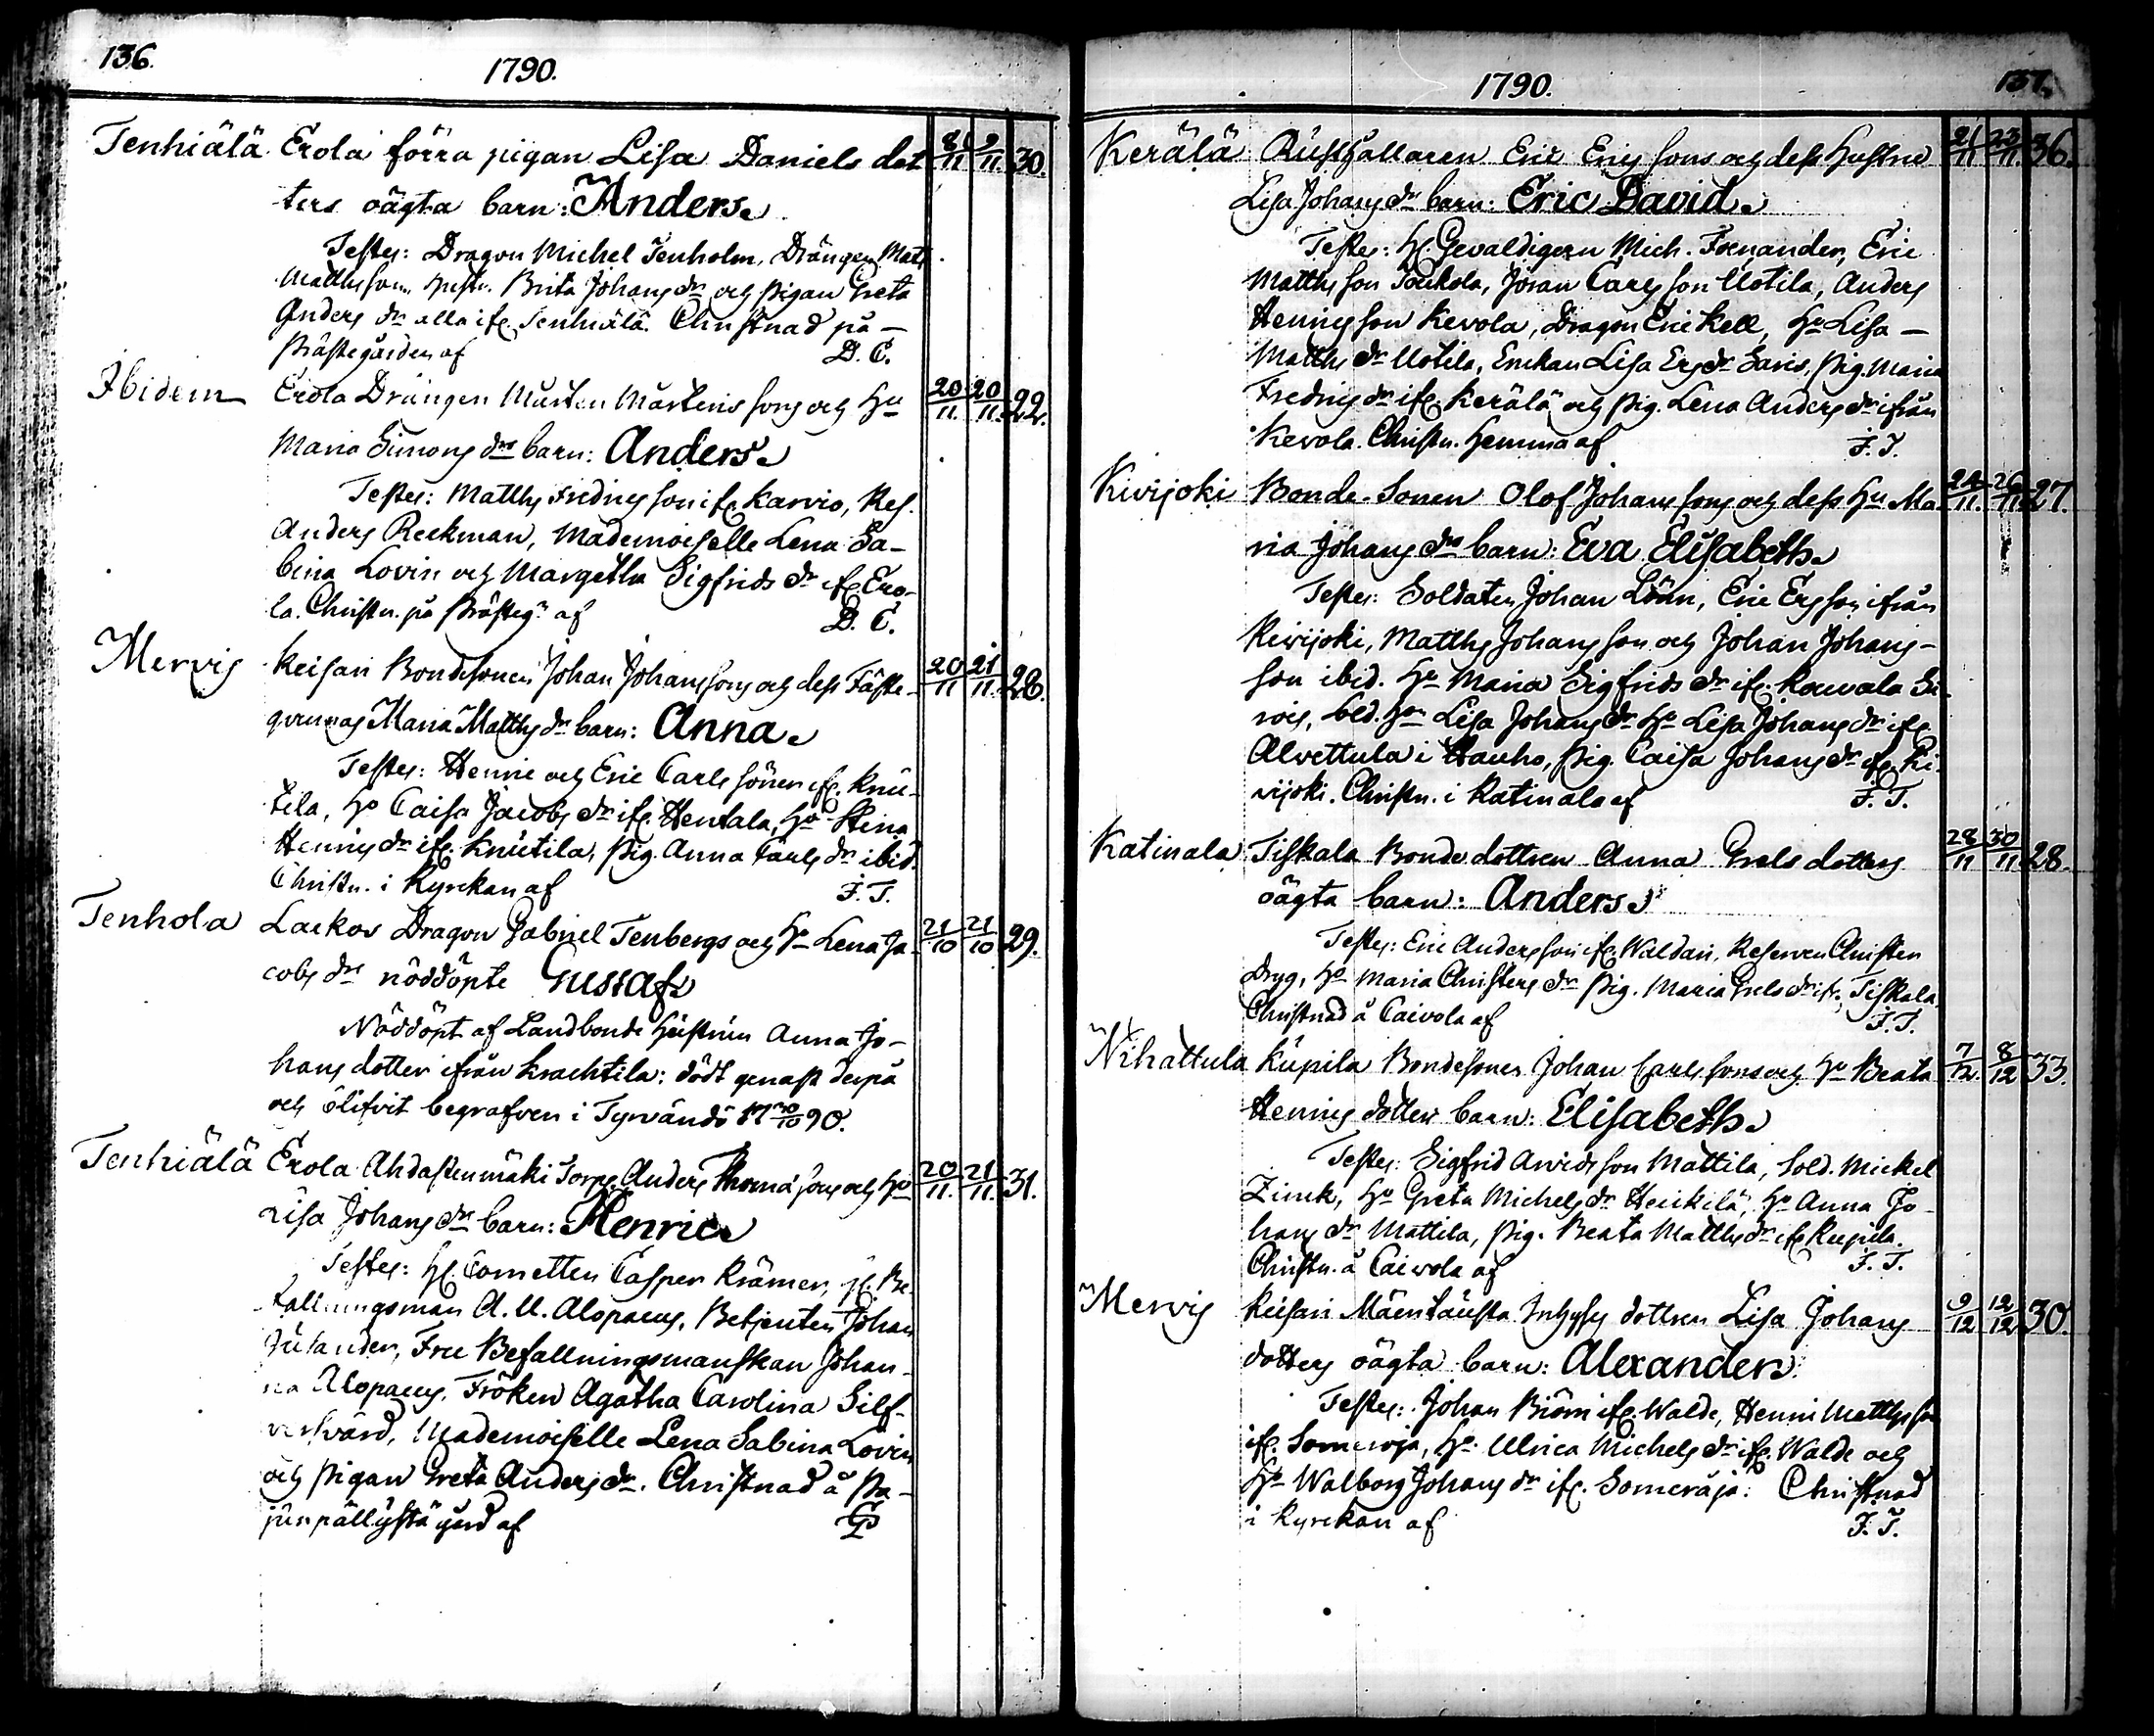 136.
1790.
Tenhiälä Erola förra pigan Lisa Daniels dot 8/11 9/11. 30.
ters oägta barn: Anders.
Testes: Dragon Michel Tenholm, Drängen Matts
Matthsson, hustr. Brita Johans dr och Pigan Greta
Anders dr alla ifr. Tenhiälä. Christnad på
Prästegården af D. C.
Ibidem Erola Drängen Mårten Mårtens sons och Hu 20/11. 20/11. 22.
Maria Simons drs barn: Anders.
Testes: Matths Fredrics son ifr. Karvio, Res.
Anders Reckman, Mademoiselle Lena Sa-
bina Lovin och Margetha Sigfrids dr ifr. Ero-
la. Christn. på Prästeg. af D. C.
Mervis Keisari Bondesonen Johan Johans sons och dess Fäste- 20/11 21/11. 28.
qvinnas Maria Matths dr barn: Anna.
Testes: Henric och Eric Carls söner ifr. Knu-
tila, Hu Caisa Jacobs dr ifr. Hentala, Hu Stina
Henrics dr ifr. Knutila, Pig. Anna Carls dr ibid.
Christn. i Kyrckan af F. T.
Tenhola Lackos Dragon Gabriel Tenbergs och Hu Lena Ja- 21/10 21/10 29.
cobs drs nöddöpte Gustaf.
Nöddöpt af Landbonde Hustrun Anna Jo-
hans dotter ifrån Krachtila: dödt genast derpå
och blifvit begrafven i Tyrvändö 17 30/10 90.
Tenhiälä Erola Ahdastenmäki Torp. Anders Thomæ sons och Hu 20/11. 21/11. 31.
Lisa Johans drs barn: Henric.
Testes: H. Cornetten Casper Krämer, H. Be-
fallningsman A. U. Alopaeus, Betjenten Johan
Julander, Fru Befallningsmanskan Johan-
na Alopaeus, Fröken Agatha Carolina Silf-
versvärd, Mademoiselle Lena Sabina Lovin
och Pigan Greta Anders dr. Christnad å Pa-
junpällystä gård af
1790.
137.
Kerälä Rusthållaren Eric Erics sons och dess Hustru 21/11 23/11. 36.
Lisa Johans drs barn: Eric David.
Testes: H. Gevaldigern Mich. Fornander, Eric
Matths son Toukola, Jöran Carls son Uotila, Anders
Henrics son Kevola, Dragon Eric Kell, Hu Lisa
Matths dr Uotila, Enckan Lisa Ers dr Saris, Pig. Maria
Fredrics dr ifr. Kerälä och Pig. Lena Anders dr ifrån
Kevola. Christn. hemma af F. T.
Kivijoki Bonde-Sonen Olof Johans sons och dess Hu Ma- 24/11. 26/11. 27.
ria Johans drs barn: Eva Elisabeth.
Testes: Soldaten Johan Löön, Eric Ers son ifrån
Kivijoki, Matths Johans son och Johan Johans-
son ibid. Hu Maria Sigfrids dr ifr.
Lisa Johans dr Hu Lisa Johans dr ifr.
Alvettula i Hauho, Pig. Caisa Johans dr ifr. Ki-
vijoki. Christn. i Katinala af F. T.
Katinala Tiskala Bonde dottren Anna Grels dotters 28/11 30/11 28.
oägta barn: Anders.
Testes: Eric Anders son ifr. Waldari, Reserven Christer
Dryg, Hu Maria Christers dr Pig. Maria Grels dr ifr. Tiskala.
Christnad å Caivola af F. T.
Nihattula Kupila Bondesonen Johan Carls sons och Hu Beata 7/12. 8/12 33.
Henrics dotters barn: Elisabeth.
Testes: Sigfrid Arvids son Mattila, Sold. Mickel
Zimk, Hu Greta Michels dr Heickilä, Hu Anna Jo-
hans dr Mattila, Pig. Beata Matths dr ifr. Kupila.
Christn. å Caivola af F. T.
Mervis Keisari Mäentausta Inhyses dottren Lisa Johans 9/12 12/12 30.
dotters oägta barn: Alexander.
Testes: Johan Biörn ifr. Walde, Henric Matths son
ifr. Someroja, Hu Ulrica Michels dr ifr. Walde och
Hu Walborg Johans dr ifr. Someroja. Christnad
i Kyrckan af F. T.